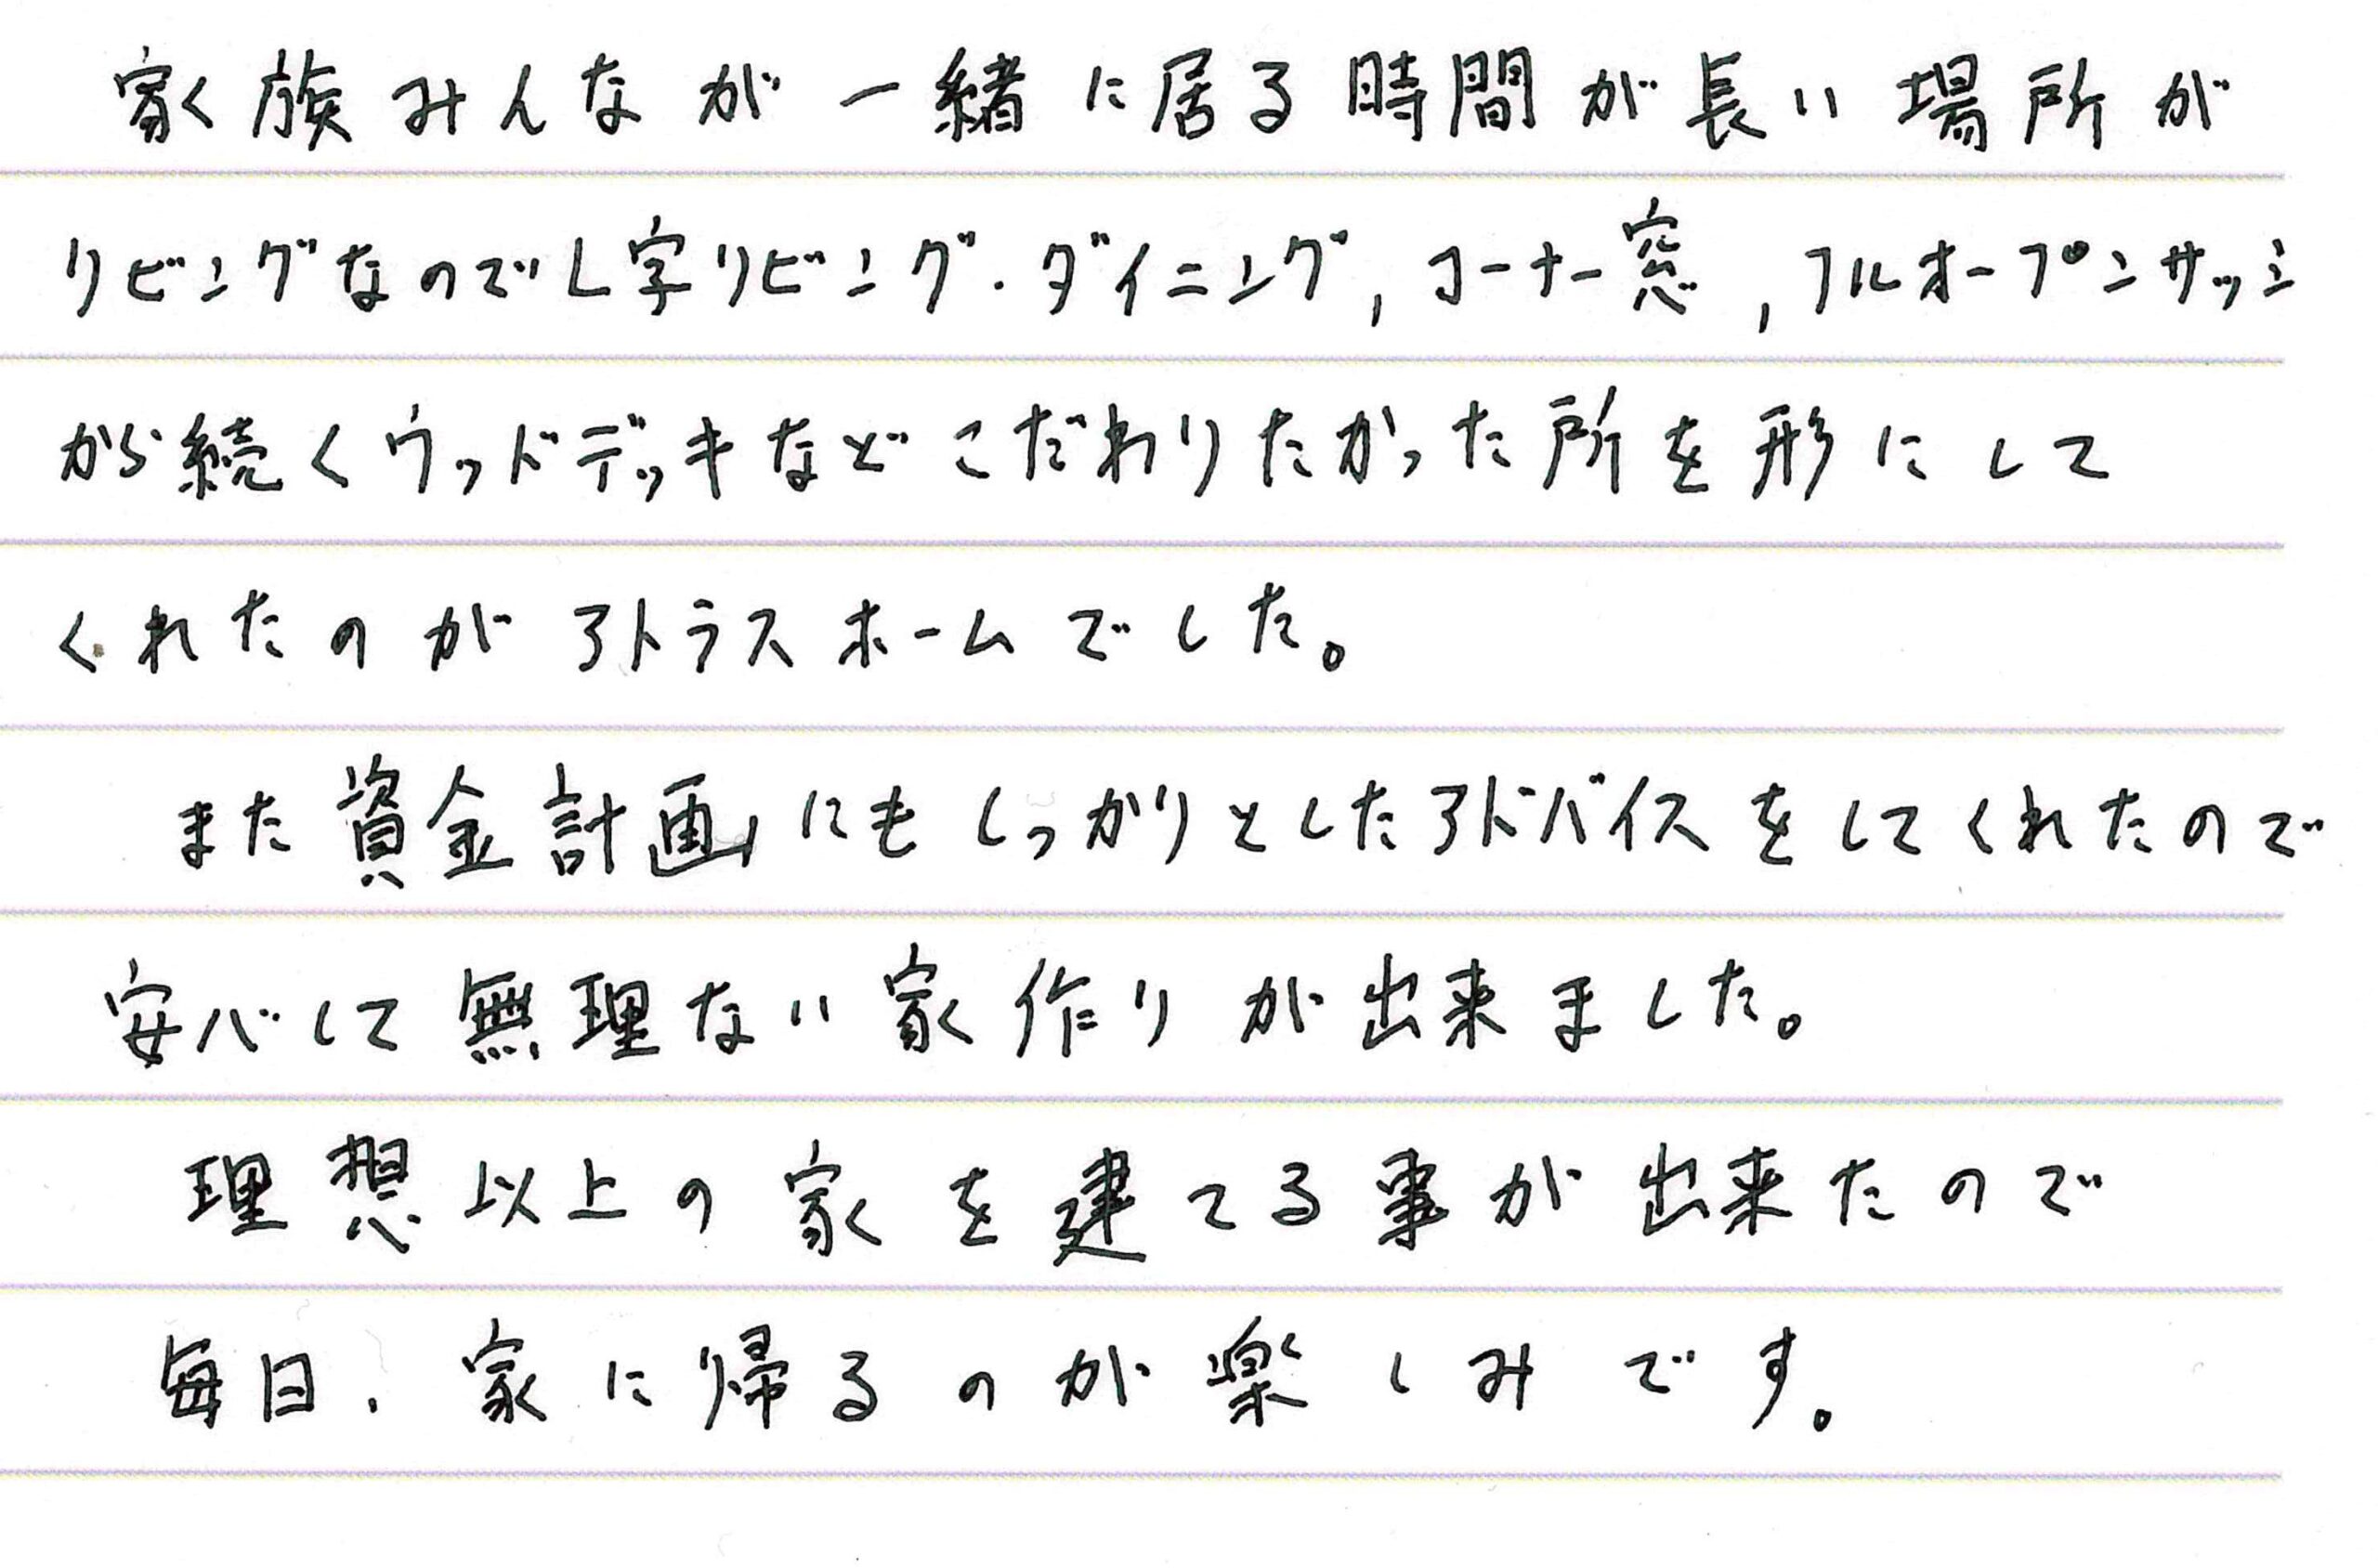 家族みんなが一緒に居る時間が長い場所が
リビングなのでL字リビング・ダイニング,コーナー窓,フルオープンサッシ
から続くウッドデッキなどこだわりたかった所を形にして
くれたのがアトラスホームでした。
また資金計画にもしっかりとしたアドバイスをしてくれたので
安心して無理ない家作りが出来ました。
理想以上の家を建てる事が出来たので
毎日、家に帰るのが楽しみです。